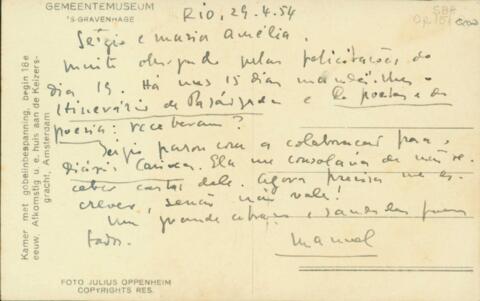 GEMEENTEMUSEUM
'S-GRAVENHAGE
Rio, 29.4.54
Sérgio e Maria Amélia.
Muito obrigado pelas felicitações do
dia 19. Há uns 15 dias mandei-lhes o
Itinerário de Pasárgada e De poetas e de
poesia: receberam?
Sergio parou com a colaboração para o
Diário Carioca. Ela me consolava de não re-
ceber cartas dele. Agora precisa me es-
crever, senão não vale!
Um grande abraço, saudades para
todos.
Manuel
Kamer met gobelinbespanning, begin 18e
eeuw. Afkomstig u. e. huis aan de Keizers-
gracht, Amsterdam
FOTO JULIUS OPPENHEIM
COPYRIGHTS RES.